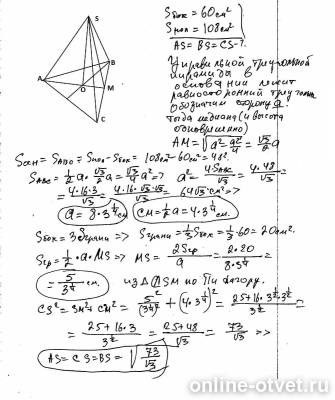 S
A
B
O
M
C
Sбок = 60 см²
Sпол = 108 см²
AS = BS = CS - ?
У правильной треугольной
пирамиды в
основании лежит
равносторонний треугольник
обозначим сторону a.
Тогда медиана (и высота
основания)
AM = √(a² - a²/4) = √3/2 a
Sосн = SABC = Sпол - Sбок = 108 см² - 60 см² = 48.
SABC = 1/2 a · √3/2 a = √3/4 a² => a² = 4SABC/√3 = 4·48/√3 =
= 4·16·3/√3 = 4·16·√3·√3/√3 = 64√3 см² =>
a = 8·3^(1/4) см CM = 1/2 a = 4·3^(1/4) см.
Sбок = 3Sграни => Sграни = 1/3 Sбок = 1/3 · 60 = 20 см².
Sгр = 1/2 · a · MS => MS = 2Sгр/a = 2·20/8·3^(1/4) =
= 5/3^(1/4) см. из △ CSM по Пифагору.
CS² = SM² + CM² = 5²/3^(1/2) + (4·3^(1/4))² = 25+16·3^(1/2)·3^(1/2)/3^(1/2) =
= 25+16·3/3^(1/2) = 25+48/√3 = 73/√3 =>
AS = CS = BS = √(73/√3)
online-otvet.ru